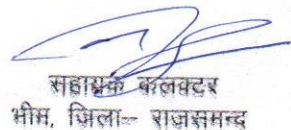 सहायक कलक्टर
भीम, जिला-- राजसमन्द